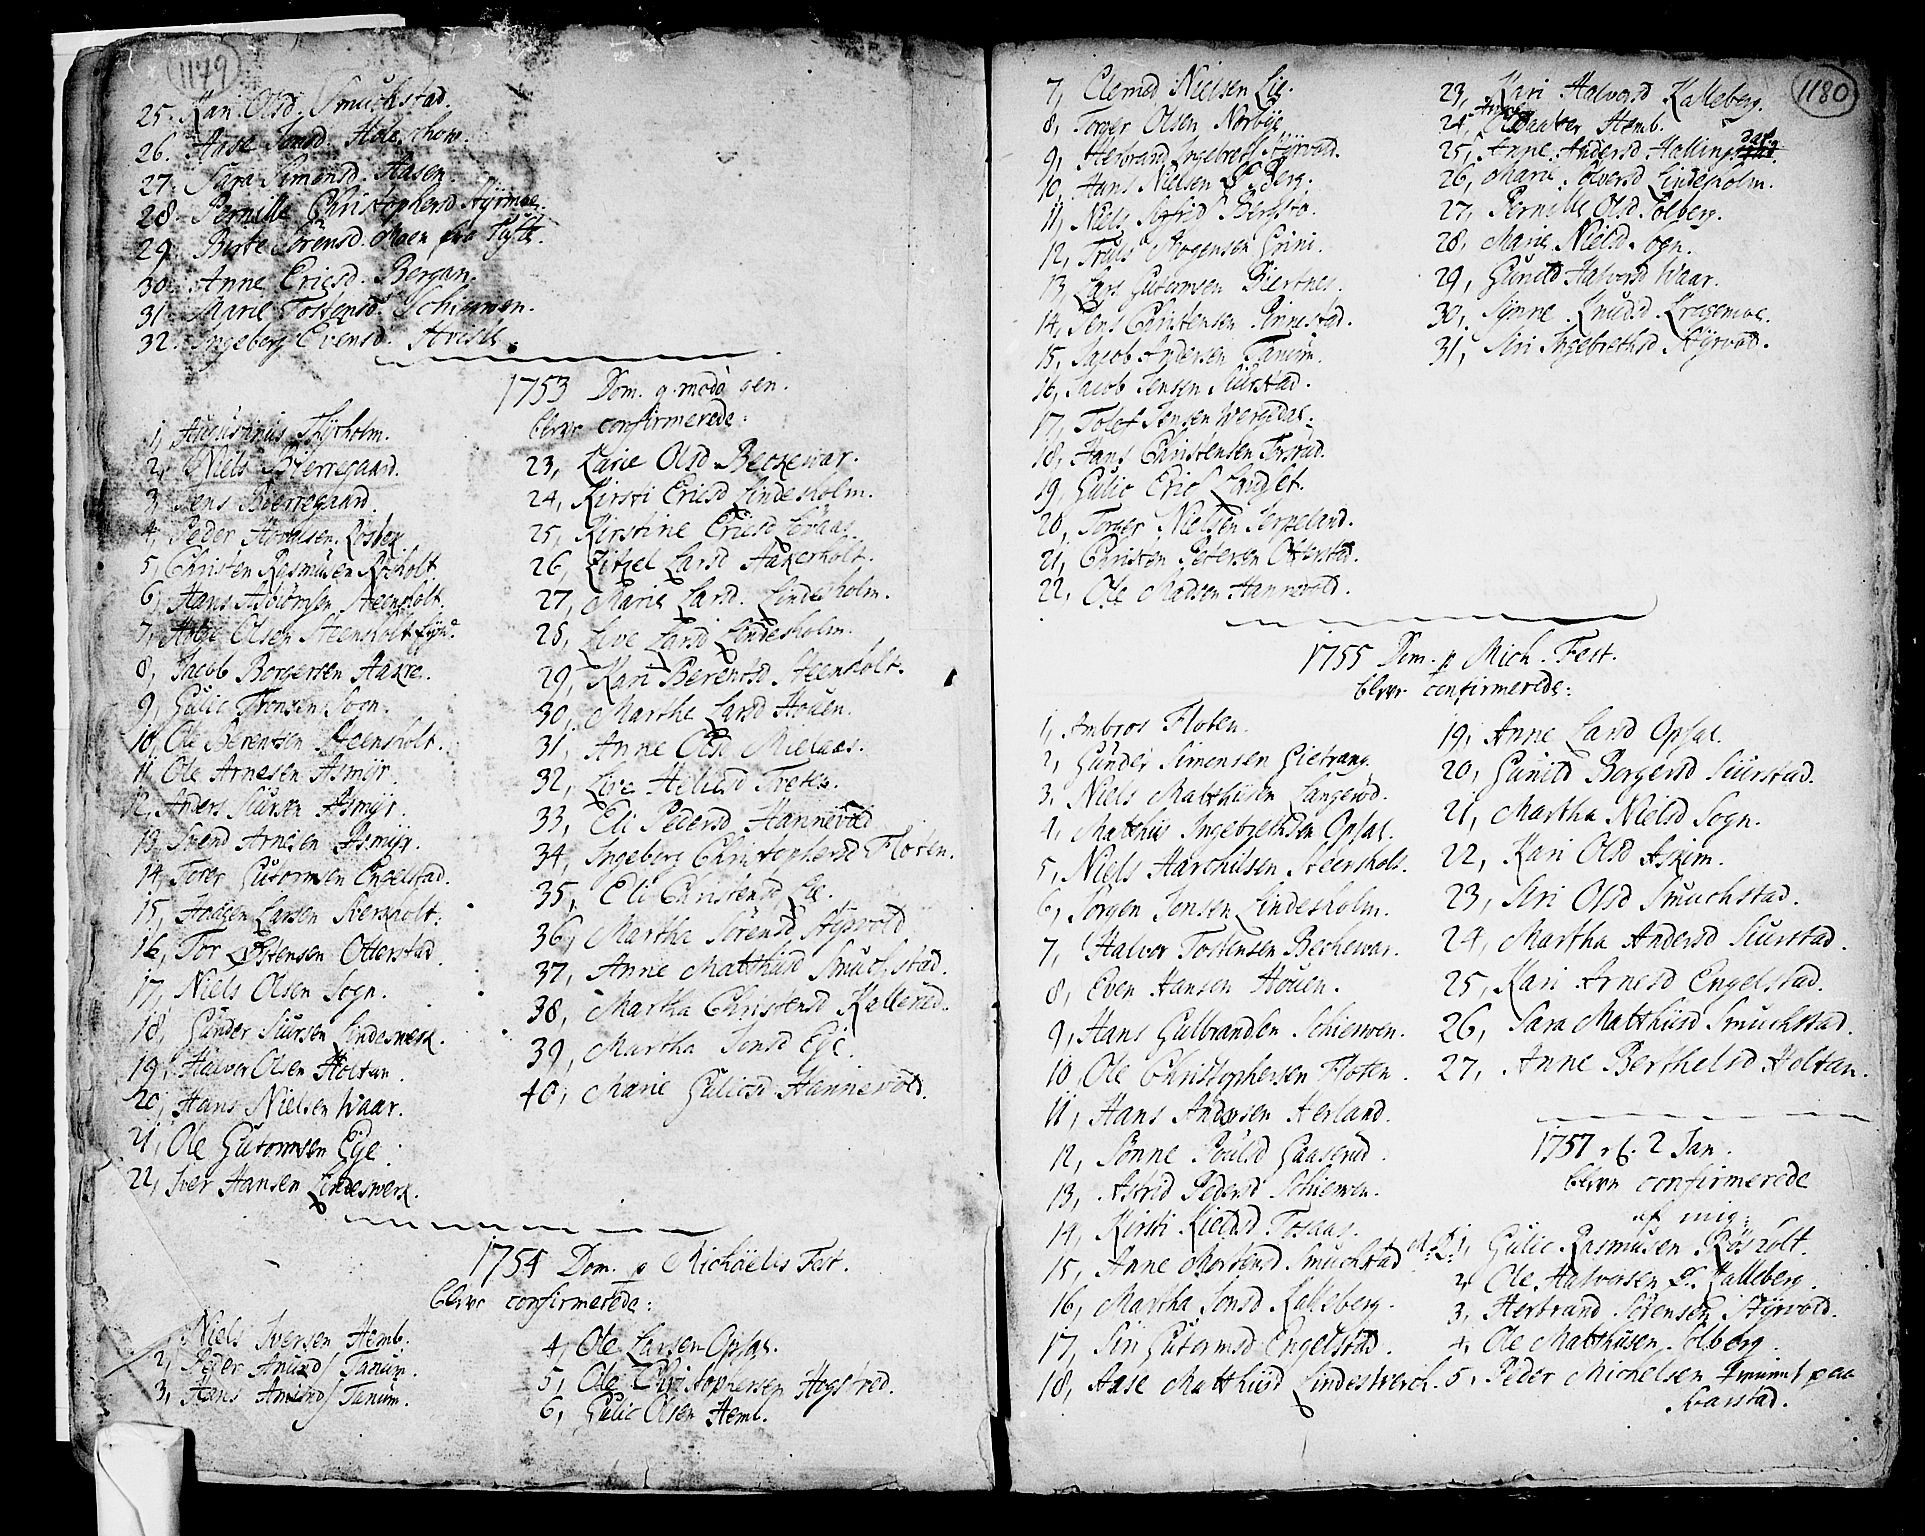 1179
25. Kari Olsd. Smuchstad.
26. Aase Jonsd.
27. Sara Simonsd. Aasen
28. Pernille Christophersd Styrmoe.
29. Birte Sörensd. Moen fra Tufte.
30. Anne Ericsd. Bergan.
31. Marie Tostensd. Schiewen.
32. Ingeborg Evensd.
1753 Dom. q. modo gen.
blevr confirmerede:
1, Augustinus
2, Niels Bierregaard.
3, Jens Bierregaard.
4, Peder
5, Christen Rasmusen Röisholt
6, Hans Asbiörnsen Steensholt.
7, Olsen Steensholt
8, Jacob Borgersen Aakre.
9, Gulic Tronsen Sogn.
10, Ole Berentsen Steensholt.
11, Ole Arnesen Asmyr.
12, Anders Siursen Asmyr.
13, Svend Arnesen Asmyr.
14, Torer Gutormsen Engelstad.
15, Haagen Larsen
16, Tor Östensen Otterstad.
17, Niels Olsen Sogn.
18, Gunder Siursen Lindeswerk.
19, Halvor Olsen Holtan.
20, Hans Nielsen Waar.
21, Ole Gutormsen Eye.
22, Iver Hansen Lindeswerk.
23, Karie Olsd Beckewar.
24, Kirsti Ericsd Lindesholm.
25, Kirstine Ericsd
26, Kitzel Larsd Aakerholt.
27, Marie Larsd. Lindesholm.
28, Live Larsd Lindesholm.
29, Kari Berentsd Steensholt.
30, Marthe Larsd Houen.
31, Anne Olsd
32, Live
33, Eli Pedersd Hannevold
34, Ingeborg Christophersd Floten.
35, Eli Christensd Lie.
36, Martha Sörensd Styrvold
37, Anne Matthiisd Smuchstad.
38, Martha Christensd Kallerud.
39, Martha Jonsd Eye.
40, Marie Gulicsd Hannevold.
1754 Dom. p Michäelis Fest.
blevr confirmerede:
1, Niels Iversen Hemb.
2, Peder Amunds Tanum.
3, Hans Amunds Tanum.
4, Ole Larsen Opsal.
5, Ole Christophersen Hogsröd.
6, Gulic Olsen Hemb.
1180
7, Clemed Nielsen Lie.
8, Torger Olsen Norbye.
9, Herbrand Ingebrets Styrvold.
10, Hans Nielsen Berg.
11, Niels
12, Truls Mogensen Grini.
13, Lars Gutormsen Biertnes.
14, Jens Christensen Rinnestad.
15, Jacob Andersen Tanum.
16, Jacob Jensen Siurstad.
17, Tolof Jensen
18, Hans Christensen Torstad.
19, Gulic Erics Langlet.
20, Torger Nielsen
21, Christen Petersen Otterstad.
22, Ole Madsen Hannevold.
23, Kari Halvorsd Kalleberg.
24, Hemb.
25, Anne Andersd
26, Marie Lindesholm.
27, Pernille Olsd Solberg.
28, Marie Nielsd Sogn.
29, Gunild Halvorsd Waar.
30, Synne Knudsd Kragemoe.
31, Siri Ingebrethsd Styrvold.
1755 Dom. p Mich. Fest.
blevr confirmerede:
1, Ambros Floten.
2, Gunder Simonsen Gietrang.
3, Niels Matthiisen Langeröd.
4, Matthis Ingebrethsen Opsal.
5, Niels Harchilsen Steensholt.
6, Jörgen Jonsen Lindesholm.
7, Halvor Tostensen Beckewar.
8, Even Hansen Houen.
9, Hans Gulbrandsen Schiewen.
10, Ole Christophersen Floten.
11, Hans Andersen Herland.
12, Sönne Poulsd Gaaserud.
13, Astrid Pedersd Schiewen.
14, Kirsti Kieldsd Tosaas.
15, Anne Mortensd Smuchstad
16, Martha Jonsd Kalleberg.
17, Siri Gutormsd Engelstad.
18, Aase Matthiisd Lindeswerck.
19, Anne Larsd Opsal.
20, Gunild Borgersd Siurstad.
21, Martha Nielsd Sogn.
22, Kari Olsd Askim.
23, Siri Olsd Smuchstad.
24, Martha Andersd Siurstad.
25, Kari Arnesd Engelstad.
26, Sara Matthiisd Smuchstad.
27, Anne Berthelsd Holtan.
1757 2 Jan.
blevr confirmerede
af mig:
1, Gulic Rasmusen Rösholt.
2, Ole Halvorsen Kalleberg.
3, Herbrand Sörensen Styrvold.
4, Ole Matthiisen Solberg.
5, Peder Michelsen paa